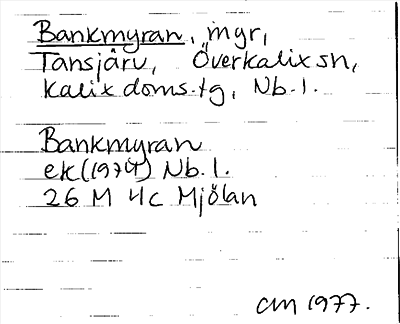 Bankmyran, mgr,
Tansjärv, Överkalix sn,
Kalix doms.tg, Nb.l.
Bankmyran
ek(1974) Nb.l.
26 M 4c Mjölan
CM 1977.